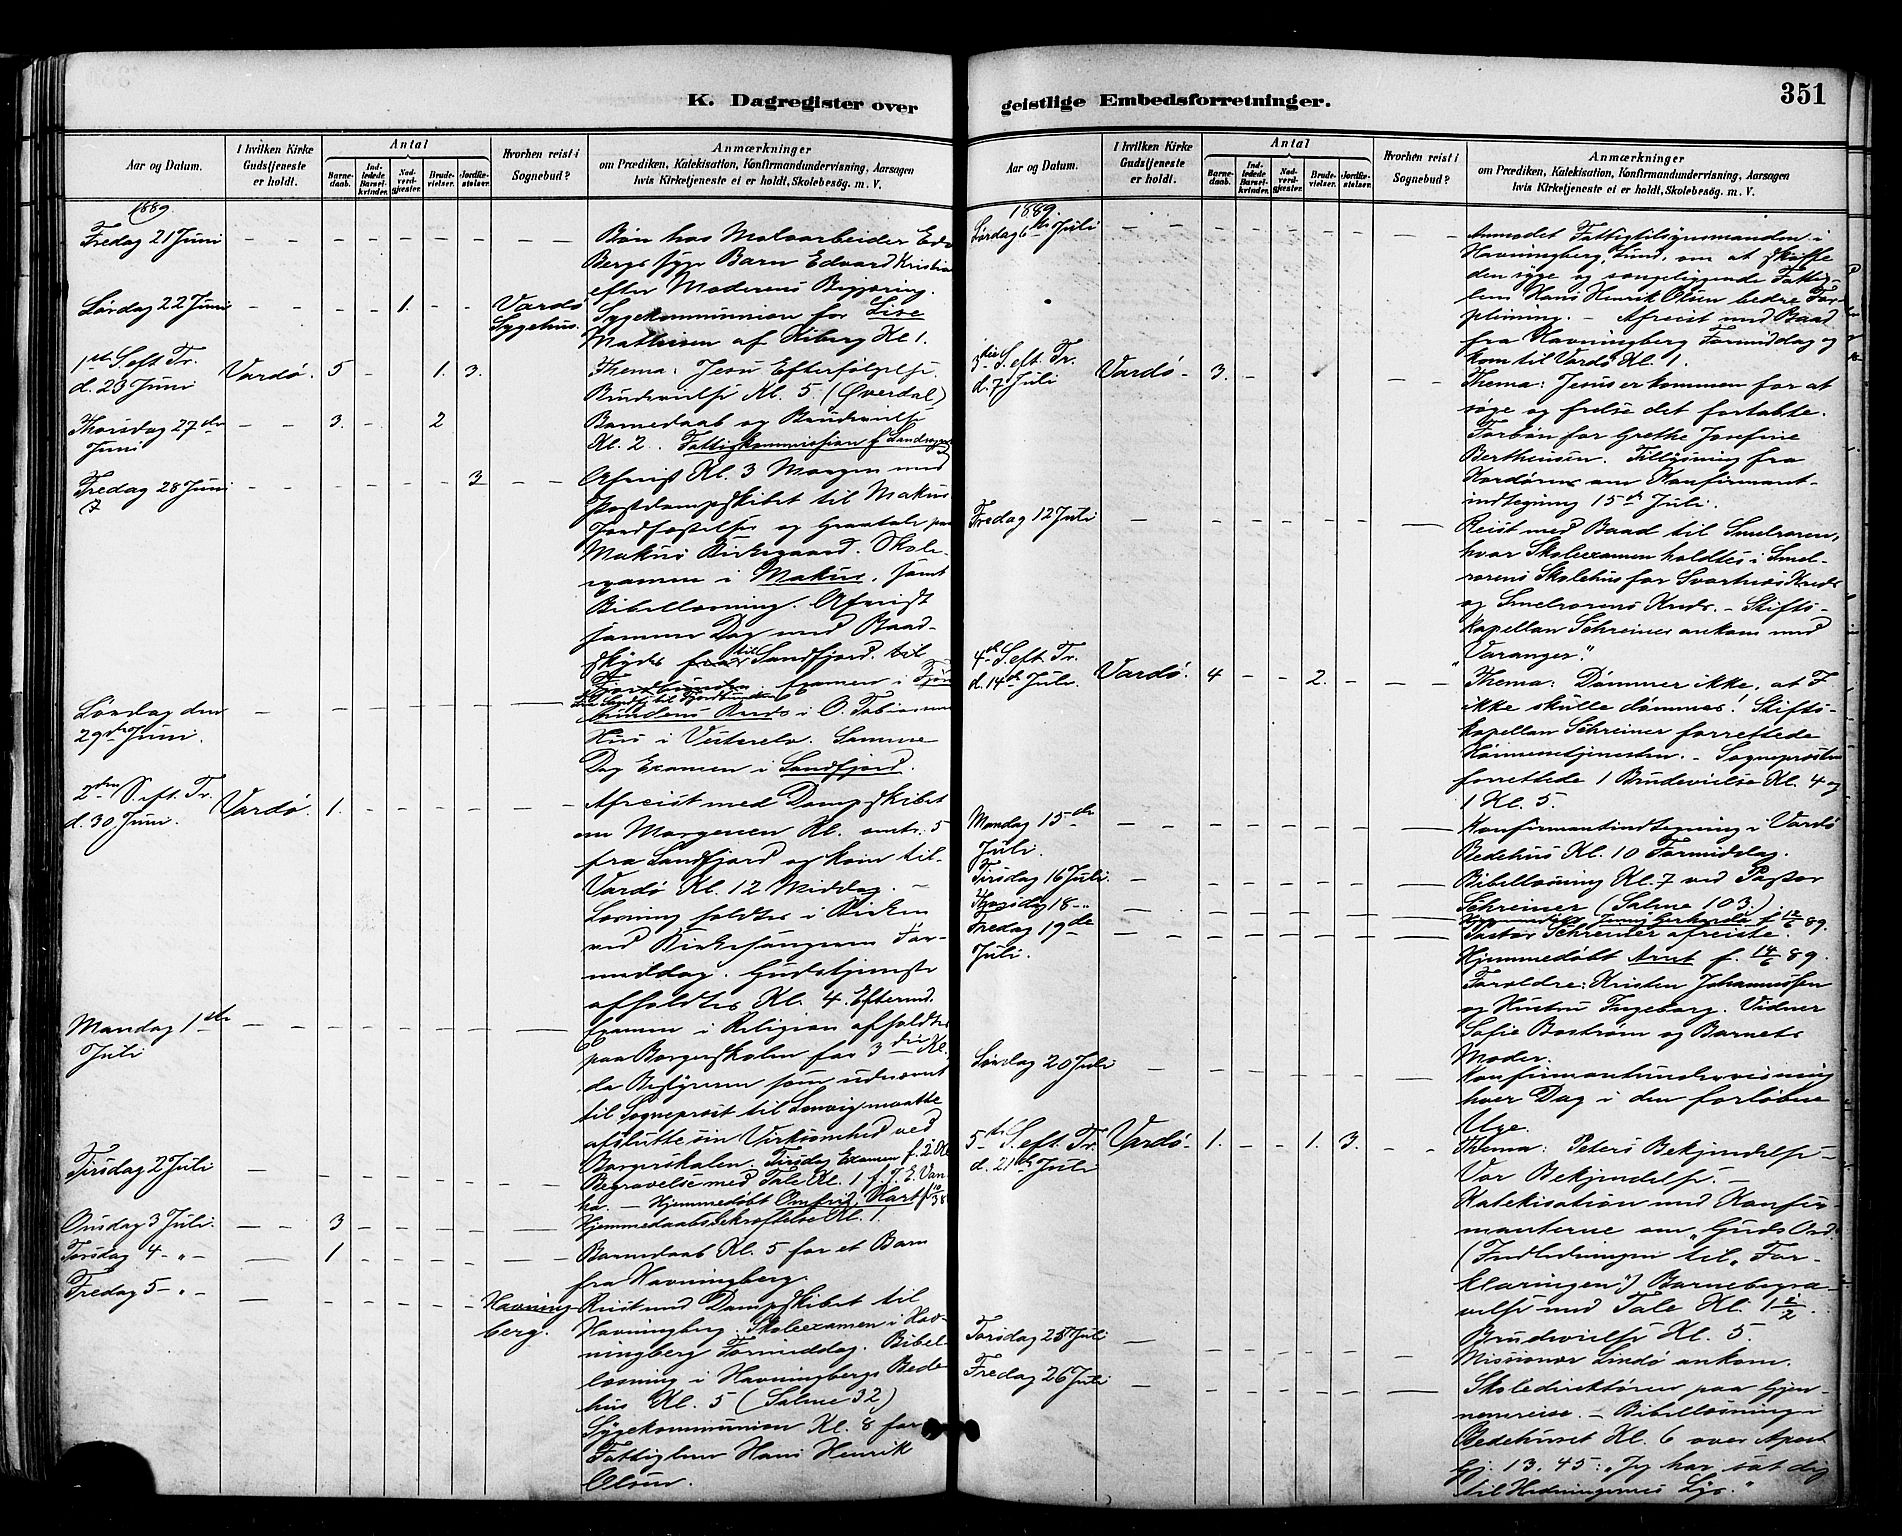 K. Dagregister over
Aar og Datum.
I hvilken Kirke Gudstjeneste er holdt.
Antal
Barnedaab.
Indledede Barselkvinder.
Nadverdgjester.
Brudevielser.
Jordfæstelser.
Hvorhen reist i Sognebud?
Anmærkninger
om Prædiken, Katekisation, Konfirmandundervisning, Aarsagen
hvis Kirketjeneste ei er holdt, Skolebesøg. m. V.
1889.
Fredag 21 Juni
Bøn hos Malerarbeider
Bergs syge Barn Edvard Kristian
efter Moderens Begjæring.
Lørdag 22 Juni 1. Vardø Sygehus.
Sygekommunion for Lise
Mathisen af Kiberg Kl 1.
1ste S. eft. Tr.
d. 23 Juni Vardø. 5 1. 3.
Thema: Jesu Efterfølgelse.
Brudevielse Kl. 5. (Øverdal)
Thorsdag 27de
Juni 3. 2
Barnedaab og Brudevielse
Kl. 2. Fattigkommission f. Landsogn
Fredag 28 Juni 3
Afreist Kl. 3 Morgen med
Postdampskibet til Makur.
Jordfæstelse og Gravtale paa
Makurs Kirkegaard. Skole-
examen i Makur, samt
Bibellæsning. Afreist
samme Dag med Baad-
skyds til Sandfjord.
Lørdag den
29de Juni.
i O. Tobiassens
Hus i Vesterelv. Samme
Dag Examen i Sandfjord.
2den S. eft. Tr.
d. 30 Juni. Vardø. 1.
Afreist med Dampskibet
om Morgenen Kl. omtr. 5
fra Sandfjord og kom til
Vardø Kl. 12 Middag. –
Læsning holdtes i Kirken
ved Kirkesangeren For-
middag. Gudstjeneste
afholdtes Kl. 4. Eftermd.
Mandag 1ste
Juli
Examen i Religion afholdtes
paa Borgerskolen for 3die Kl.
da Bestyreren som udnævnt
til Sogneprest til Lenvig maatte
afslutte sin Virksomhed ved
Borgerskolen. Tirsdag Examen f. 2 Kl
Tirsdag 2 Juli
Begravelse med Tale Kl. 1 f. J. E. Van-
ha. – Hjemmedøbt
Onsdag 3 Juli. 3
Hjemmedaabsbekræftelse Kl. 1.
Torsdag 4 – „ – 1
Barnedaab Kl. 5 for et Barn
fra Havningberg.
Fredag 5 – „ –
Havningberg.
Reist med Dampskibet til
Havningberg. Skoleexamen i Hav-
ningberg Formiddag. Bibel-
læsning i Havningbergs Bede-
hus Kl. 5 (Salme 32)
Sygekommunion Kl. 8 for
Fattiglem Hans Henrik
Olsen.
geistlige Embedsforretninger.
351
Aar og Datum.
I hvilken Kirke Gudstjeneste er holdt.
Antal
Barnedaab.
Indledede Barselkvinder.
Nadverdgjester.
Brudevielser.
Jordfæstelser.
Hvorhen reist i Sognebud?
Anmærkninger
om Prædiken, Katekisation, Konfirmandundervisning, Aarsagen
hvis Kirketjeneste ei er holdt, Skolebesøg m. V.
1889.
Lørdag 6te Juli
Anmodet Fattigtilsynsmanden i
Havningberg, Lund, om at skaffe
den syge og sengeliggende Fattig-
lem Hans Henrik Olsen bedre For-
pleining. – Afreist med Baad
fra Havningberg Formiddag og
kom til Vardø Kl. 1.
3die S. eft. Tr.
d. 7 Juli Vardø. 3.
Thema: Jesus er kommen for at
søge og frelse det fortabte.
Forbøn for Grethe Josefine
Bertheusen. Tillysning fra
Kordøren om Konfirmant-
indtegning 15de Juli.
Fredag 12 Juli
Reist med Baad til Smelroren,
hvor Skoleexamen holdtes i Smel-
rorens Skolehus for Svartnes Kreds
og Smelrorens Kreds. – Stifts-
kapellan Schreiner ankom med
"Varanger".
4de S. eft. Tr.
d. 14de Juli. Vardø. 4 2.
Thema: Dømmer ikke, at I
ikke skulle dømmes! Stifts-
kapellan Schreiner forrettede
Høimessetjenesten. – Sognepresten
forrettede 1 Brudevielse Kl. 4 og
1 Kl. 5.
Mandag 15de
Juli.
Konfirmantindtegning i Vardø
Bedehus Kl. 10 Formiddag.
Tirsdag 16 Juli.
Bibellæsning Kl. 7 ved Pastor
Schreiner (Salme 103.)
Thorsdag 18 – „
Hjemmedøbt
Fredag 19de
Juli.
Pastor Schreiner afreiste.
Hjemmedøbt Arnt f. 14/6 89.
Forældre: Kristen Johannessen
og Hustru Ingeborg. Vidner
Sofie Bostrøm og Barnets
Moder.
Lørdag 20 Juli
Konfirmantundervisning
hver Dag i den forløbne
Uge.
5te S. eft. Tr.
d. 21de Juli Vardø. 1. 1. 3.
Thema: Peters Bekjendelse –
Vor Bekjendelse. –
Katekisation med Konfir-
manterne om „Guds Ord"
(Indledningen til „For-
klaringen".) Barnebegra-
velse med Tale Kl. 1 1/2.
Brudevielse Kl. 5.
Torsdag 25 Juli
Missionær Lindø ankom.
Fredag 26 Juli
Skoledirektøren paa Gjen-
nemreise. – Bibellæsning i
Bedehuset Kl. 6 over Apost
Gj. 13. 45: „Jeg har sat dig
til Hedningernes Lys."